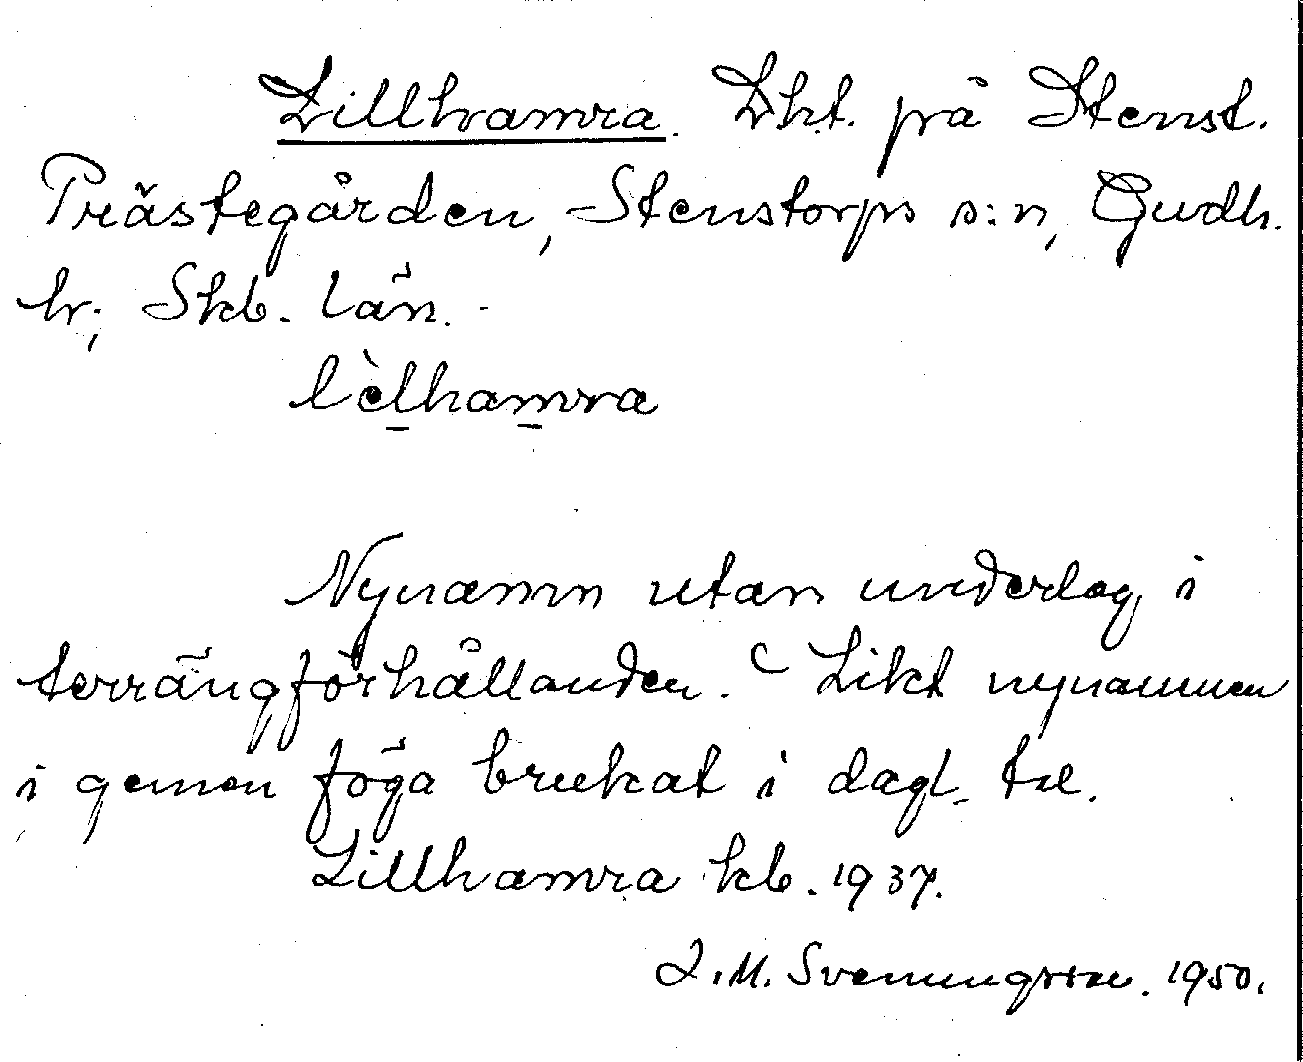 Lillhamra. Lht. på Stenst.
Prästegården, Stenstorps s:n, Gudh.
hr; Skb. län. -
lèlhamra
Nynamn utan underlag i
terrängförhållanden. Likt nynamnen
i gemen föga brukat i dagl. tal.
Lillhamra kb. 1937.
J. M. Svenungsson. 1950.